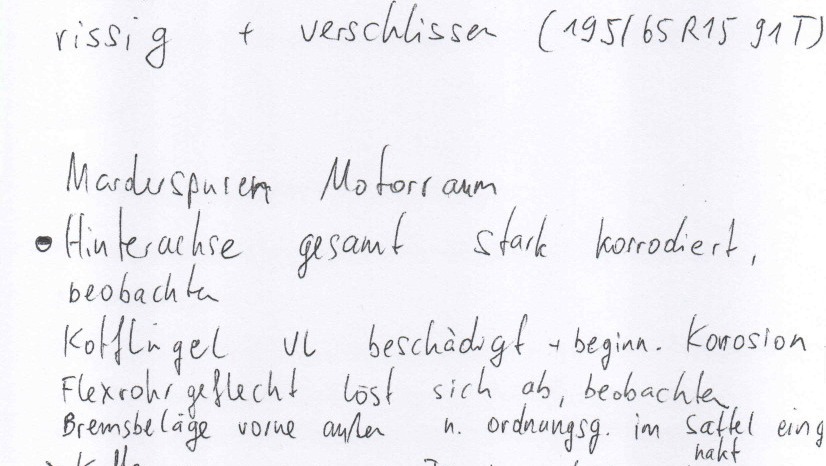 rissig + verschlissen (195/65 R15 91T)
Marderspuren Motorraum
• Hinterachse gesamt stark korrodiert,
beobachten
Kotflügel VL beschädigt + beginn. Korrosion
Flexrohrgeflecht löst sich ab, beobachten
Bremsbeläge vorne außen n. ordnungsg. im Sattel eing
hakt